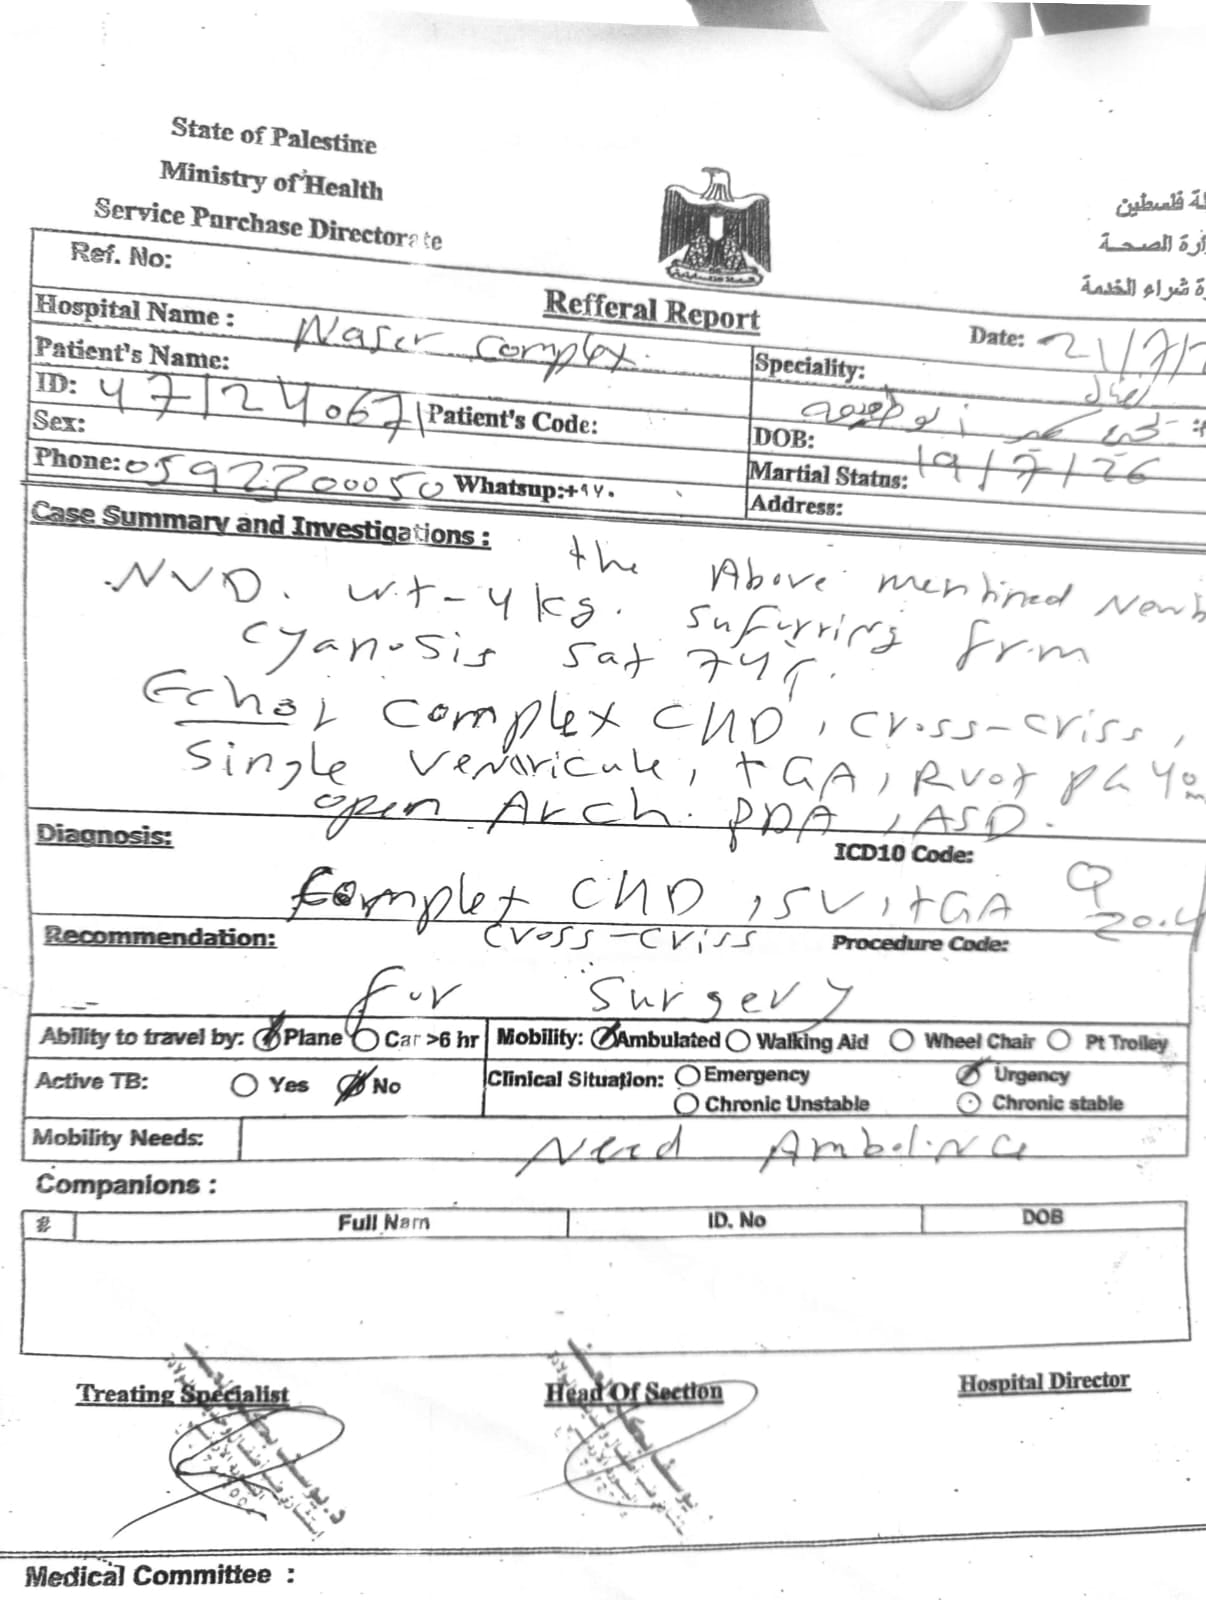 State of Palestine
Ministry of Health
Service Purchase Directorate
فلسطين
الصحة
شراء الخدمة
Ref. No:
Refferal Report
Date: 21/7/
Hospital Name : Naser Complex.
Patient's Name:
Speciality:
ID: 471240671 Patient's Code:
Sex:
DOB: 19/7/26
Phone: 0592200050 Whatsup:+٩٧٠
Martial Status:
Address:
Case Summary and Investigations :
the Above mentined Newb
NVD. wt-4kg. Sufurring frm
cyanosis sat 74%.
Echo: Complex CHD, cross-criss,
Single Venricule, TGA, RVOT PG 40
open Arch. PDA, ASD.
Diagnosis:
ICD10 Code:
Complex CHD, SV, TGA Q
20.4
cross-criss
Recommendation:
Procedure Code:
for Surgery
Ability to travel by: Plane Car >6 hr Mobility: Ambulated Walking Aid Wheel Chair Pt Trolley
Active TB: Yes No Clinical Situation: Emergency Urgency
Chronic Unstable Chronic stable
Mobility Needs: Need Ambolince
Companions :
# Full Nam ID. No DOB
Treating Specialist Head Of Section Hospital Director
Medical Committee :